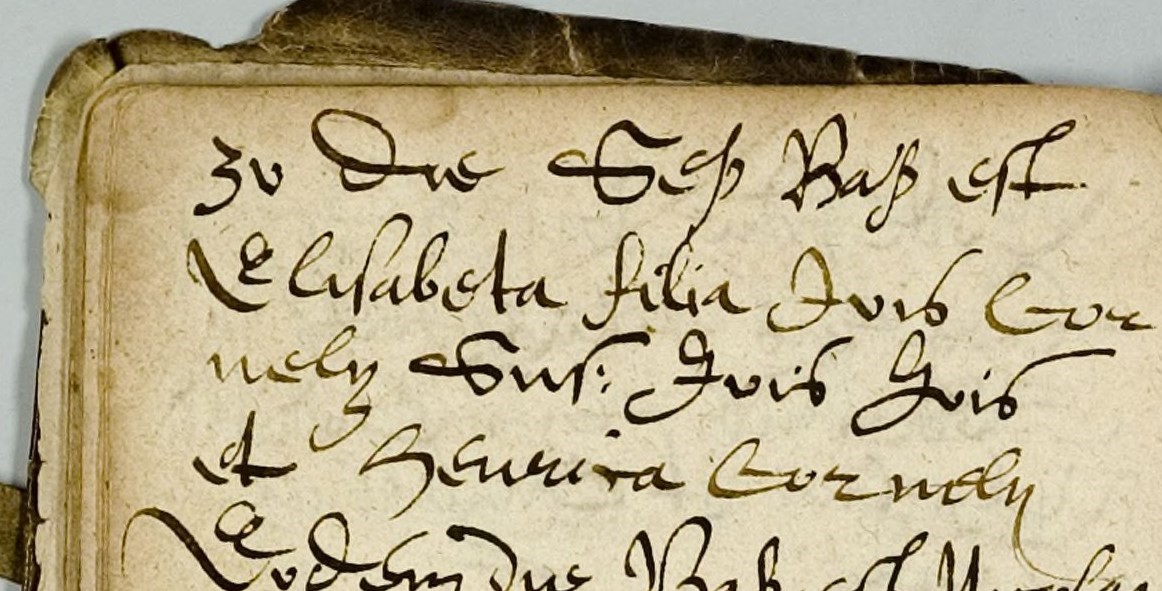 30 die Sep Bap est
Elisabeta filia Jois Cor
nely Sus: Jois Gois
et Henrica Cornely
Eodem die Bap est